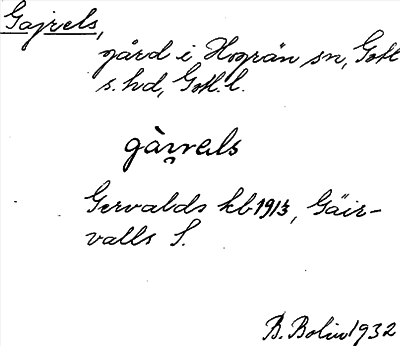 Gajrels,
gård i Hogrän sn, Gotl
s. hd, Gotl. l.
gàrvals
Gervalds kb 1913, Gäir-
valls S.
B. Bolin 1932